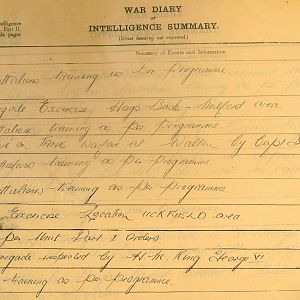 WAR DIARY
or
INTELLIGENCE SUMMARY.
(Erase heading not required.)
telligence
Part II.
pages
Summary of Events and Information
ttalions training as per Programme
gade Exercise Hogs Back - Milford area
talions training as per Programme
on Tank Warfare at Walton by Capt
ttalions training as per Programme
ttalions training as per Programme
Exercise Location UCKFIELD area
per Unit Part 1 Orders.
rigade inspected by H.M. King George VI
training as per Programme.